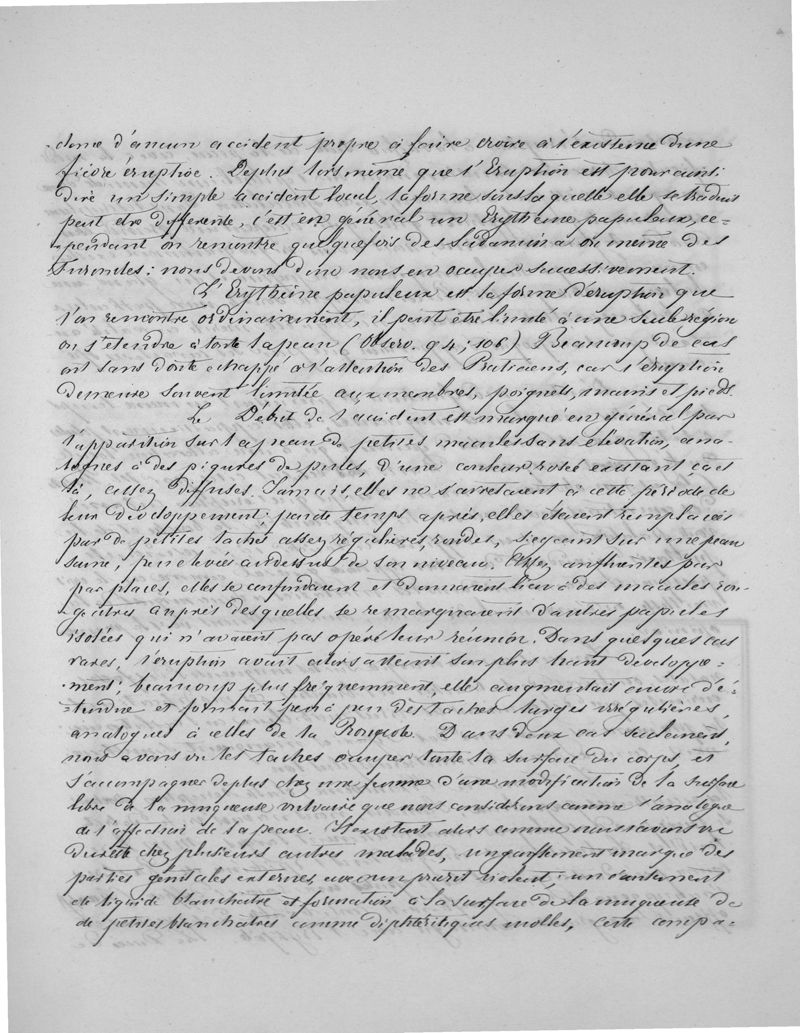 -dome d'aucun accident propre à faire croire à l'existence d'une
fièvre éruptive. De plus lors même que l'Eruption est pour ainsi
dire un simple accident local, la forme sous laquelle elle se traduit
peut etre differente, c'est en général un Erythème papuleux, ce-
-pendant on rencontre quelquefois des Sudamina ou meme des
Furoncles: nous devons donc nous en occuper successivement.
L'Erythème papuleux est la forme d'éruption que
l'on rencontre ordinairement, il peut être limité à une seule région
ou s'etendre à toute la peau (Observ. 94; 106) Beaucoup de cas
ont sans doute echappé à l'attention des Praticiens, car l'éruption
demeure souvent limitée aux membres, poignets, mains et pieds.
Le Début de l'accident est marqué en général par
l'apparition sur la peau de petites macules sans élévation, ana-
logues à des piqures de puces, d'une couleur rosée existant ça et
là, assez diffuses. Jamais, elles ne s'arretaient à cette période de
leur développement; peu de temps après, elles étaient remplacées
par de petites taches assez régulières, rondes, siegeant sur une peau
saine, peu elevées au dessus de son niveau. Assez confluentes par
par places, elles se confondaient et donnaient lieu à des macules rou-
-geatres auprès desquelles se remarquaient d'autres papules
isolées qui n'avaient pas opéré leur réunion. Dans quelques cas
rares, l'éruption avait alors atteint son plus haut développe-
-ment; beaucoup plus fréquemment, elle augmentait encore d'é-
-tendue et formait peu à peu des taches larges irrégulières,
analogues à celles de la Rougeole. Dans deux cas seulement,
nous avons vu les taches occuper toute la surface du corps, et
s'accompagner de plus chez une femme d'une modification de la surface
libre de la muqueuse vulvaire que nous considerons comme l'analogue
de l'affection de la peau. Il existait alors comme nous l'avons vu
du reste chez plusieurs autres malades, un gonflement marqué des
parties génitales externes, avec un prurit violent; un suintement
de liquide blanchatre et formation à la surface de la muqueuse de
de petites blanchatres comme diphtéritiques molles, cette compa-